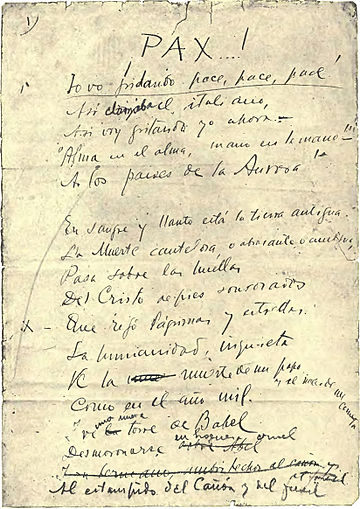 1)
PAX....!
Io vo gridando pace, pace, pace!
Así clamaba el italiano,
Así voy gritando yo ahora.—
"Alma en el alma, mano en la mano"
A los países de la Aurora!
En sangre y llanto está la tierra antigua.
La Muerte cautelosa, o abrasante o ambigua
Pasa sobre las huellas
Del Cristo de pies sonrosados
Que regó lágrimas y estrellas.
La humanidad, inquieta
Ve la muerte de un papa y el nacer de un cometa
Como en el año mil.
Y ve una nueva torre de Babel
Desmoronarse en hoguera cruel
Al estampido del Cañón y del fusil